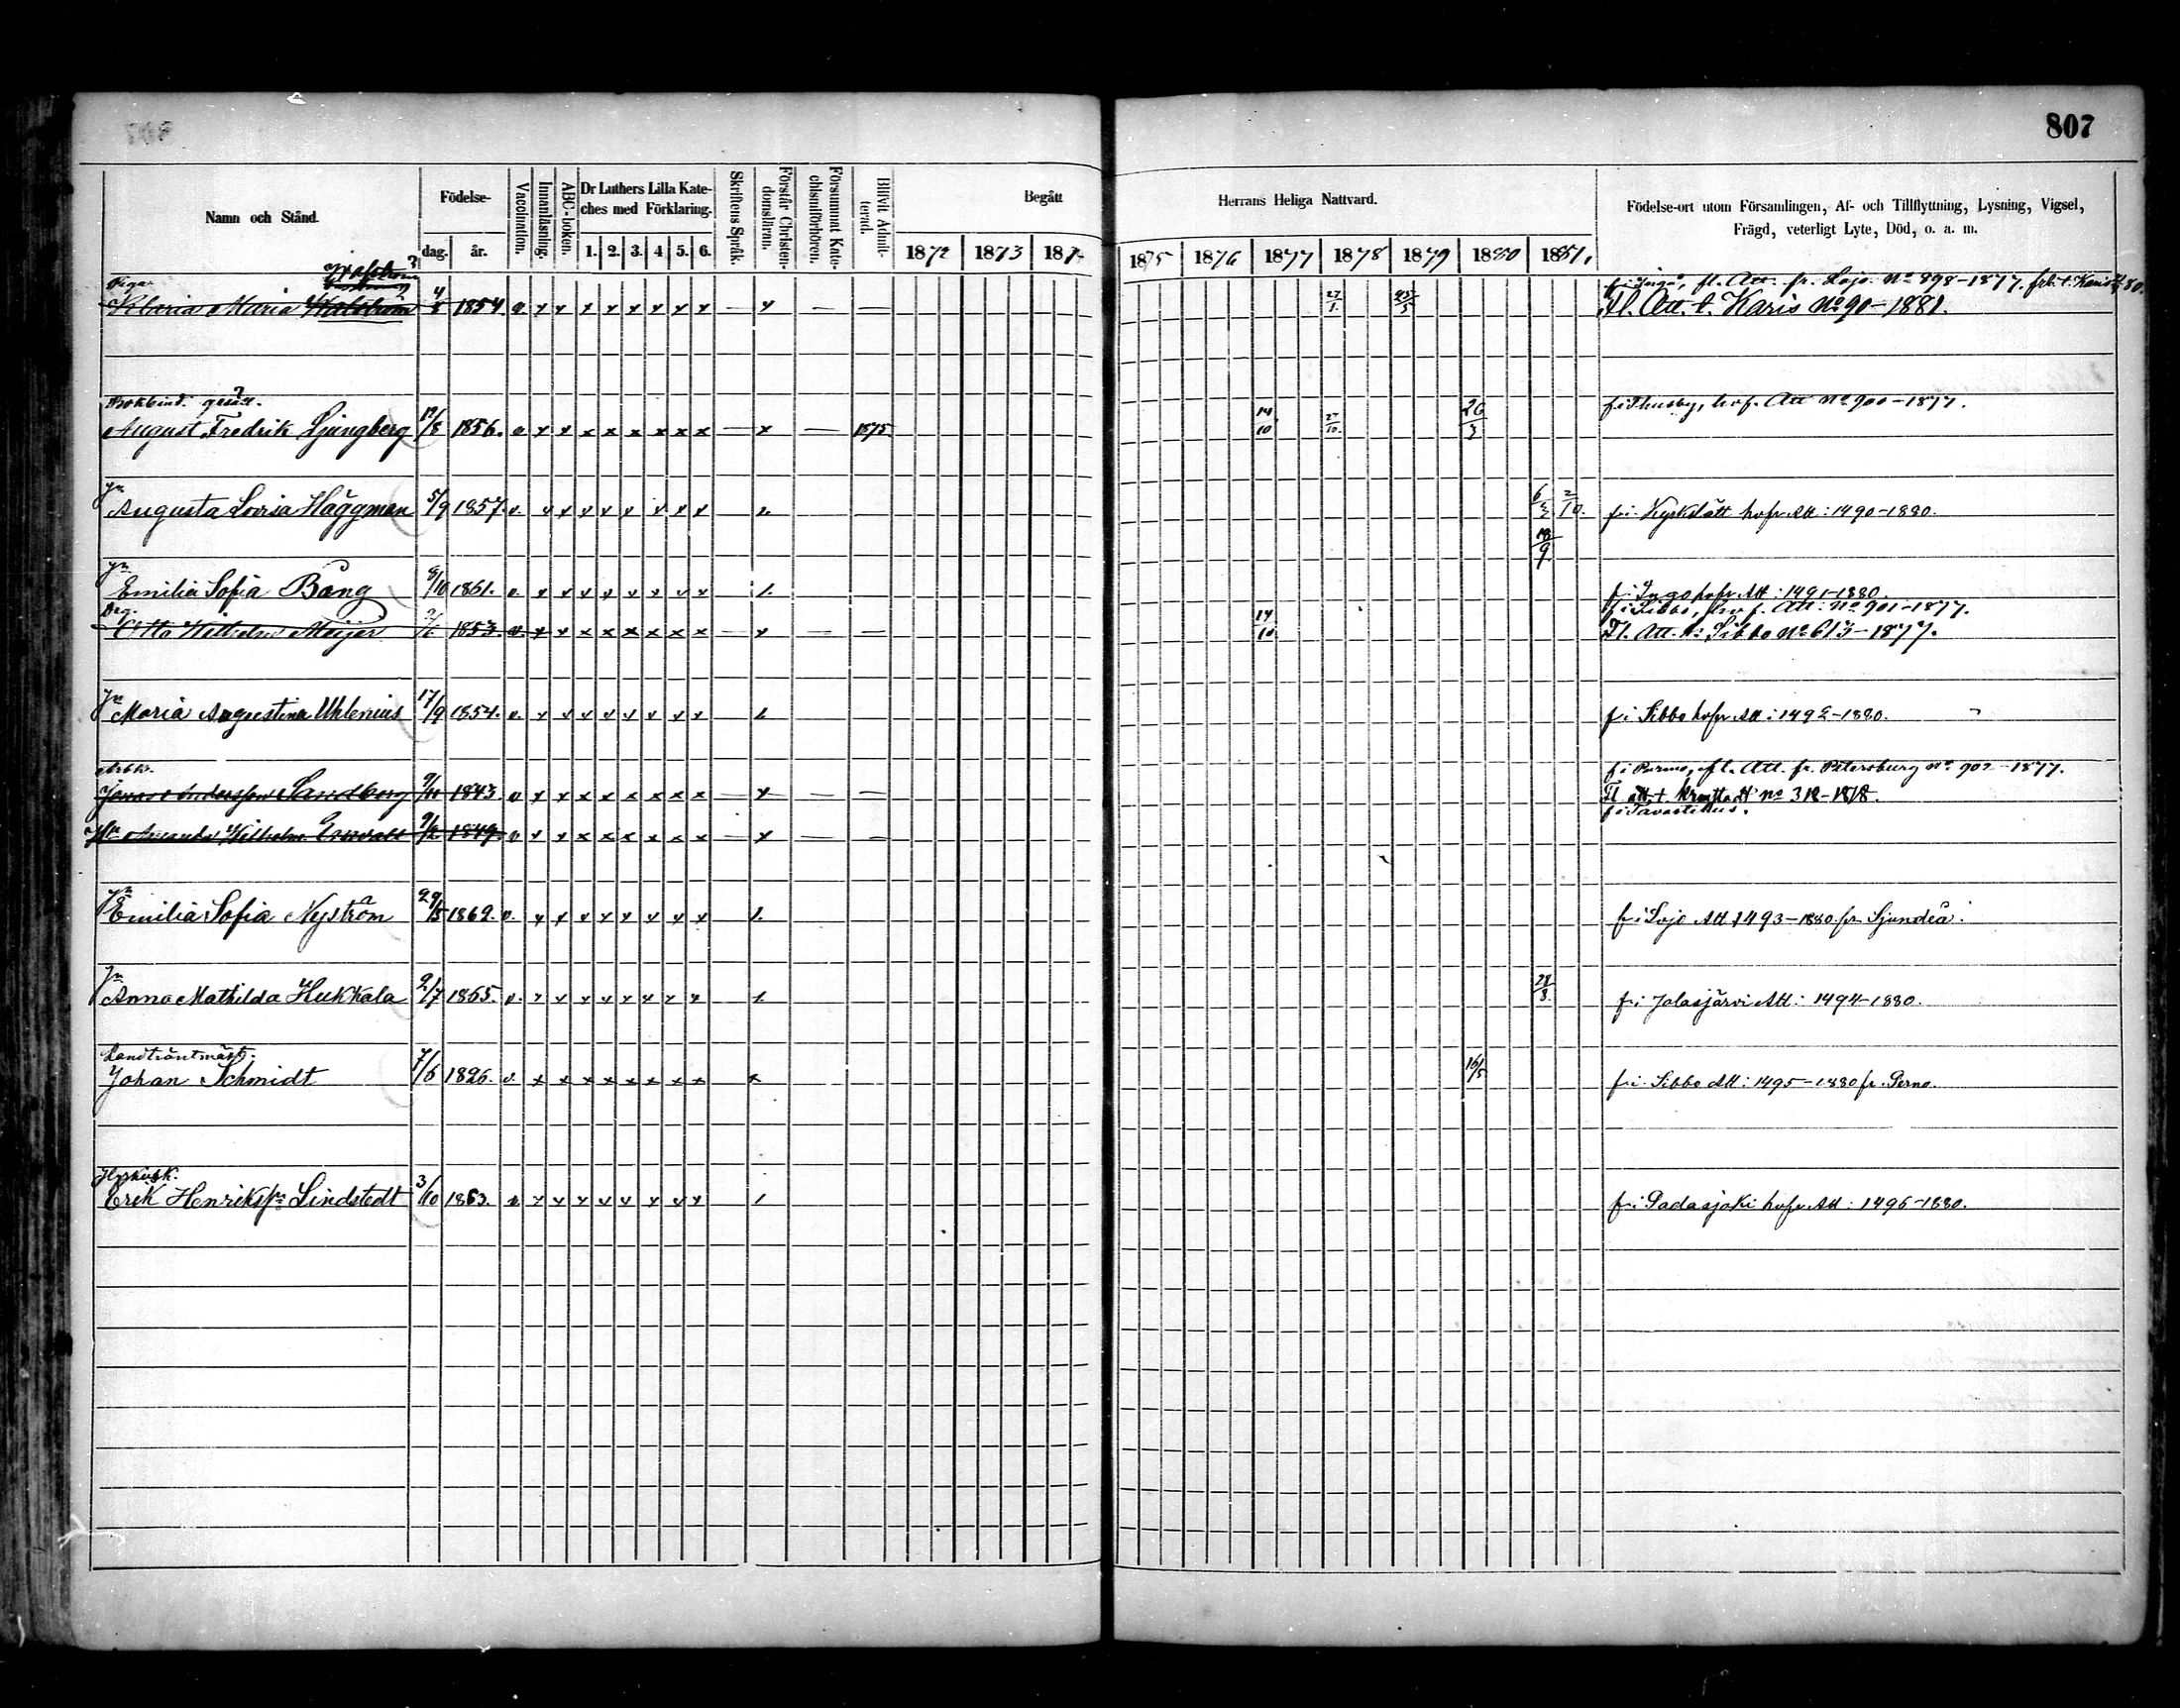 807
Namn och Stånd.
Födelse-
dag. år.
Vaccination.
Innanläsning.
ABC-boken.
Dr Luthers Lilla Kate-
ches med Förklaring.
1. 2. 3. 4 5. 6.
Skriftens Språk.
Förstår Christen-
domsläran.
Försummat Kate-
chismiförhören.
Blifvit Admit-
terad.
Begått
Herrans Heliga Nattvard.
1872 1873 187
1875 1876 1877 1878 1879 1880 1881.
Födelse-ort utom Församlingen, Af- och Tillflyttning, Lysning, Vigsel,
Frägd, veterligt Lyte, Död, o. a. m.
Piga
Maria Walström 4/8 1854 v x x x x x x x x — x — — 27/1. 25/5 fl. Att. fr. Lojo. No 898-1877.
Fl. Att. t. Karis No 90-1881.
Bokbind. gesäll.
August Fredrik Ljungberg 12/8 1856. v x x x x x x x x — x — 1875 14/10 27/10. 26/3 f. i Thusby, hrf. Att No 900-1877.
Jn
Augusta Lovisa Häggman 5/9 1857. v. x x x x x x x x 6/3 2/10. f. i. Kyrkslätt hrfr Att: 1490-1880.
18/9
Jn
Emilia Sofia Bång 8/10 1861. v. x x x x x x x x f. i Ingo hrfr Att: 1491-1880.
Drg.
Otto Wilhelm Meijer 2/6 1853. v. x x x x x x x x — x — — 14/10 f. i Sibbo, hrf. Att: No 901-1877.
Fl. Att. t. Sibbo No 613-1877.
Jn
Maria Augustina Uhlenius 17/9 1854. v. x x x x x x x x f. i Sibbo hrfr Att: 1492-1880.
Arbk.
Jonas Andersson Sandberg 9/11 1843. v x x x x x x x x — x — — f. i Purmo, fl. Att. fr. Petersburg No. 902-1877.
Fl att. t Kronstadt no 312-1878.
Amanda Wilhelm. 9/2 1849. v x x x x x x x x — x — — f. i Tavastehus.
Jn
Emilia Sofia Nyström 29/5 1862. v. x x x x x x x x f. i Lojo Att 1493-1880. fr Sjundeå.
Jn
Anna Mathilda Hukkala 2/7 1865. v. x x x x x x x x 28/8. f. i Jalasjärvi Att: 1494-1880.
Landträntmäst.
Johan Schmidt 7/6 1826. v. x x x x x x x x x 16/5 f. i. Sibbo Att: 1495-1880 fr. Perno.
Hyrkusk.
Erik Henrikssn Lindstedt 3/10 1863. v x x x x x x x x f. i Padasjoki hrfr Att: 1496-1880.